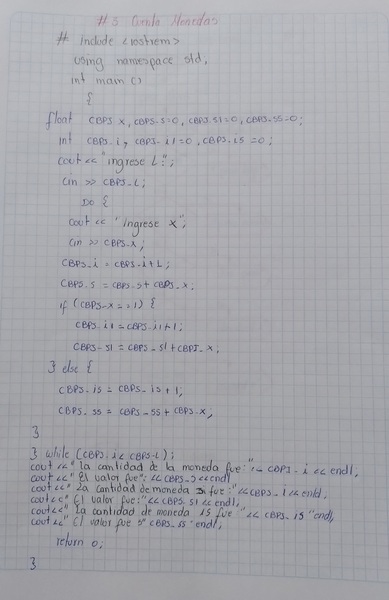 #5 Cuenta Monedas
# Include <iostrem>
using namespace std,
int main ()
{
float CBPS x, CBPS-S=0, CBPS.S1=0, CBPS-S5=0;
int CBPS-i, CBPS-i1=0, CBPS-i5=0;
cout << "ingrese L:";
Cin >> CBPS-L;
DO {
cout << "Ingrese x";
Cin >> CBPS-x;
CBPS-i = CBPS-i+1;
CBPS.S = CBPS-S+ CBPS-x;
if (CBPS-x==1) {
CBPS-i1=CBPS-i1+1;
CBPS-S1 = CBPS-S1+CBPS-x,
} else {
CBPS-i5 = CBPS-i5+1,
CBPS-S5 = CBPS-S5+ CBPS-x,
}
} while (CBPS-i< CBPS-L);
cout <<" la cantidad de la moneda fue:" CBPS-i << endl,
cout <<" El valor fue": <<CBPS-S<<endl
cout <<" La cantidad de moneda fue:"<<CBPS-1<<endl,
cout <<" El valor fue:"<<CBPS.S1 <<endl,
cout <<" La cantidad de moneda i5 fue" << CBPS-i5 "endl,
cout <<" El valor fue CBPS-S5 "endl,
return 0;
}